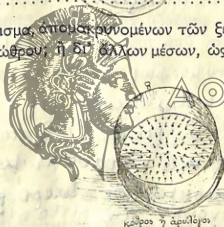 ισμα, ἀπομακρυνομένων τῶν ξ
ώθρου; ἢ δι' ἄλλων μέσων, ὡς
B
ΑΘ
ἢ ἀρυλόγος